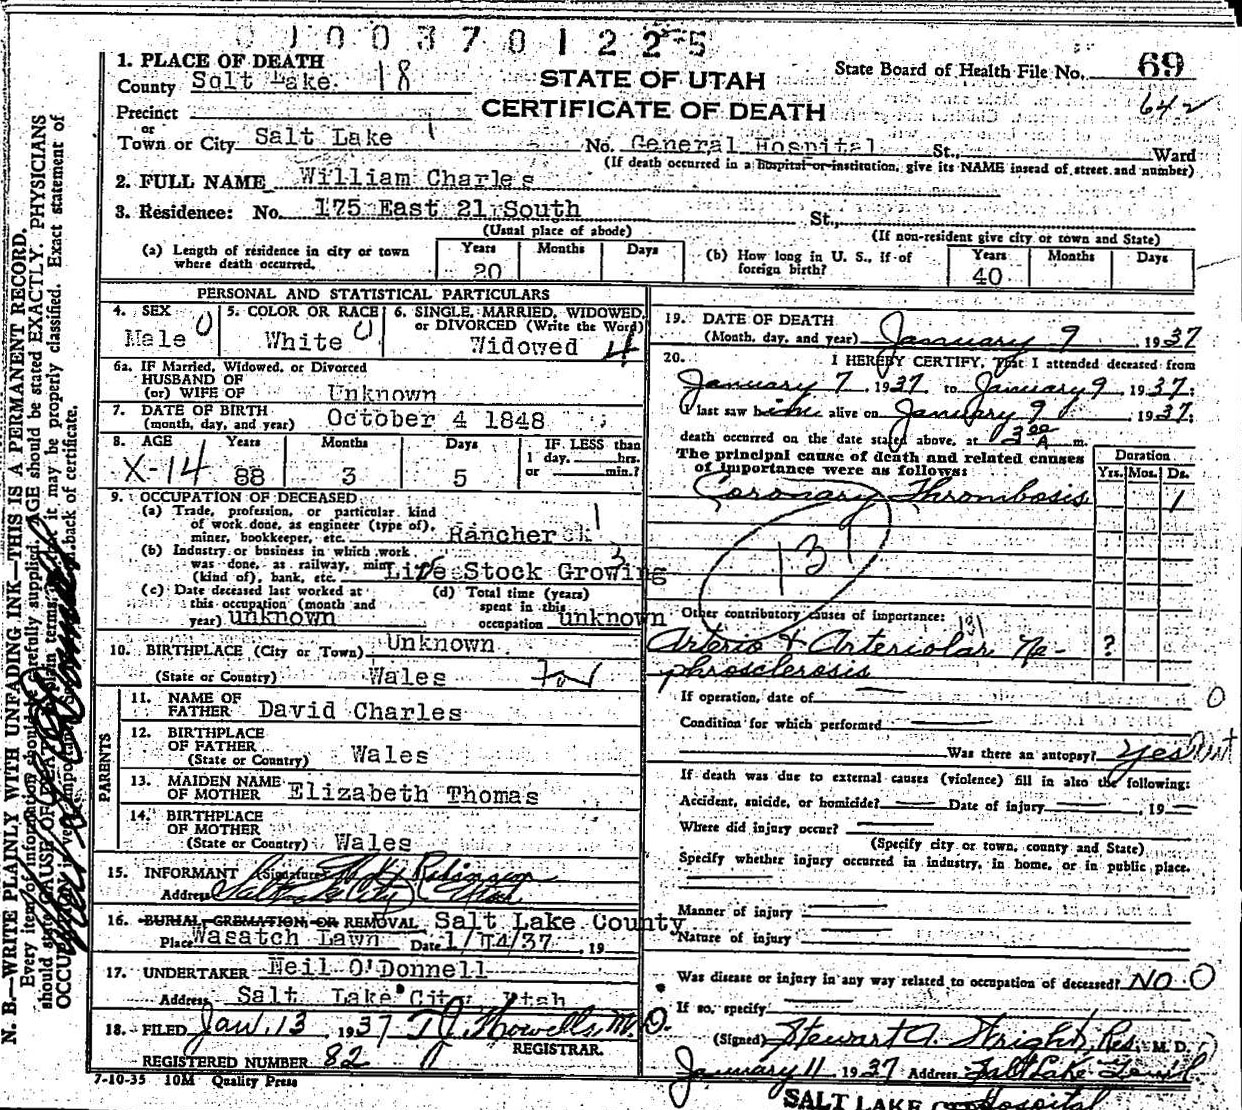 0 1 0 0 3 7 0 1 2 2 5
1. PLACE OF DEATH
County Salt Lake 18
STATE OF UTAH
CERTIFICATE OF DEATH
State Board of Health File No. 69
642
Precinct
or
Town or City Salt Lake 1 No. General Hospital St., Ward
(If death occurred in a hospital or institution, give its NAME insead of street and number)
2. FULL NAME William Charles
3. Residence: No. 175 East 21 South St.,
(Usual place of abode) (If non-resident give city or town and State)
(a) Length of residence in city or town where death occurred. Years 20 Months Days
(b) How long in U. S., if of foreign birth? Years 40 Months Days
PERSONAL AND STATISTICAL PARTICULARS
4. SEX Male 0
5. COLOR OR RACE White 0
6. SINGLE, MARRIED, WIDOWED, or DIVORCED (Write the Word) Widowed 4
6a. IF Married, Widowed, or Divorced
HUSBAND OF
(or) WIFE OF Unknown
7. DATE OF BIRTH
(month, day, and year) October 4 1848
8. AGE Years Months Days IF LESS than
X-14 88 3 5 1 day, hrs.
or min.?
9. OCCUPATION OF DECEASED
(a) Trade, profession, or particular kind
of work done, as engineer (type of),
miner, bookkeeper, etc. Rancher
(b) Industry or business in which work
was done, as railway, mint
(kind of), bank, etc. Live Stock Growing
(c) Date deceased last worked at
this occupation (month and
year) unknown
(d) Total time (years)
spent in this
occupation unknown
10. BIRTHPLACE (City or Town) Unknown
(State or Country) Wales
PARENTS
11. NAME OF
FATHER David Charles
12. BIRTHPLACE
OF FATHER
(State or Country) Wales
13. MAIDEN NAME
OF MOTHER Elizabeth Thomas
14. BIRTHPLACE
OF MOTHER
(State or Country) Wales
15. INFORMANT (Signature) Robinson
Address Salt Lake City Utah
16. BURIAL, CREMATION, OR REMOVAL Salt Lake County
Place Wasatch Lawn Date 1/14/37, 19
17. UNDERTAKER Neil O'Donnell
Address Salt Lake City Utah
18. FILED Jan. 13, 1937 Howells, M.D.
REGISTRAR.
REGISTERED NUMBER 82
7-10-35 10M Quality Press
19. DATE OF DEATH
(Month, day, and year) January 9 1937
20. I HEREBY CERTIFY, That I attended deceased from
January 7, 1937 to January 9 1937;
I last saw him alive on January 9, 1937;
death occurred on the date stated above, at 3:00 A m.
The principal cause of death and related causes
of importance were as follows: Duration
Yrs. Mos. Ds.
Coronary Thrombosis 1
131
Other contributory causes of importance: 131
Arterio & Arteriolar Ne- ?
phrosclerosis
If operation, date of 0
Condition for which performed
Was there an autopsy? Yes
If death was due to external causes (violence) fill in also the following:
Accident, suicide, or homicide? Date of injury , 19
Where did injury occur?
(Specify city or town, county and State)
Specify whether injury occurred in industry, in home, or in public place.
Manner of injury
Nature of injury
Was disease or injury in any way related to occupation of deceased? NO 0
If so, specify
(Signed) Stewart A. Wright, Res. M. D.
January 11 1937 Address Salt Lake Genl
Hospital
SALT LAKE CITY
N. B.—WRITE PLAINLY WITH UNFADING INK—THIS IS A PERMANENT RECORD.